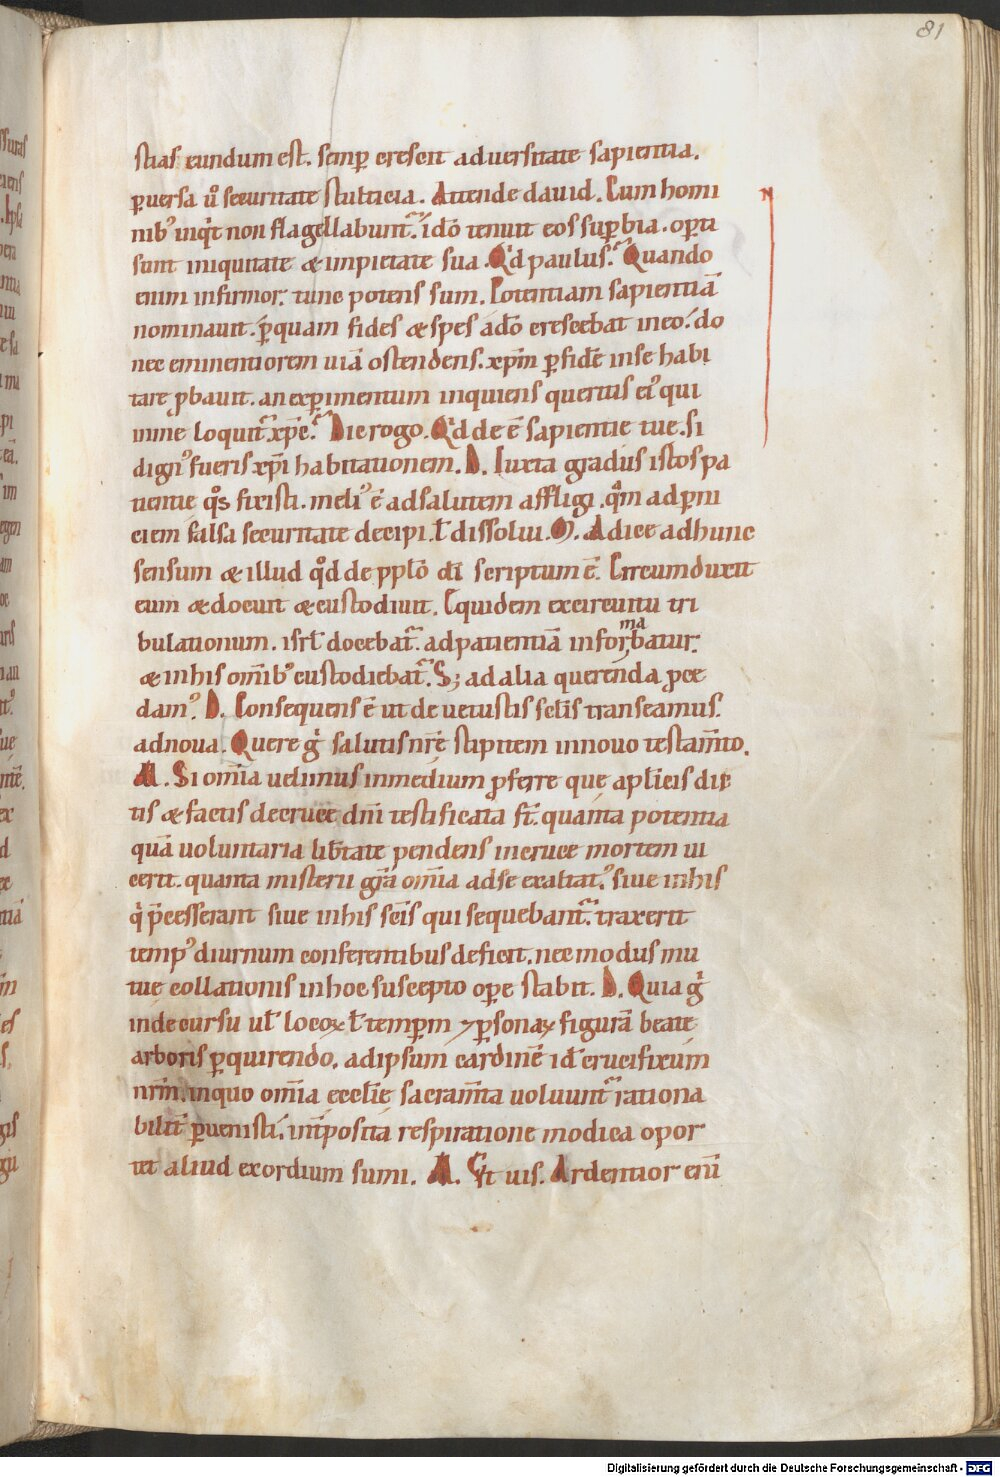 81
stias eundum est. semp̄ crescit adversitate sapientia.
p̱uersa ū securitate stulticia. Attende dauid. Cum homi
nib᾽ inq̇t non flagellabunt᷑. idō tenuit eos sup̱bia. op̱ti
sunt iniquitate & impietate sua. Qd̓ paulus. Quando
enim infirmor. tunc potens sum. Potentiam sapientiā
nominauit. p̱quam fides & spes ādō crescebat ineo. ido
nec eminentiorem uiā ostendens. xp̄m p̱ fidē inse habi
tare p̱bauit. an exp̱imentum inquiens queritis ei᾽ qui
inme loquit᷑ xp̄c. Dic rogo. Qd̓ de ē sapientie tue. si
dign᾽ fueris xp̄i habitationem. D. Iuxta gradus istos pa
tientie q̊s fixisti. meli᾽ ē adsalutem affligi. q̄m adp̱ni
ciem falsa securitate decipi. ł dissolui. M. Adice adhunc
sensum & illud qd̓ de pp̱lō dī scriptum ē. Circumduxit
eum & docuit & custodiuit. Equidem excircuitu tri
bulationum. isrł docebat᷑. adpatientiā inforbatur.
ma
& inhis om̄ib᾽ custodiebat᷑. S; ad alia querenda p̱ce
dam᾽. D. Consequens ē ut de uetustis sc̄is transeamus.
adnova. Quere g̊ salutis nr̄ē stipitem innouo testam̄to.
M. Si om̄ia uelimus inmedium p̱ferre que apłicis dic
tis & factis decruce dn̄i testificata st̄. quanta potentia
quā uoluntaria lib̄tate pendens incruce mortem ui
cerit. quanta misterii gr̄a om̄ia adse exaltat᾽. siue inhis
q̇ p̄cesserant siue inhis sc̄is qui sequebant᷑. traxerit
temp᾽ diurnum conferentibus deficit. nec modus mu
tue collationis inhoc suscepto op̱e stabit. D. Quia g̊
inde cursu uł locoꝝ ł temp̱m ⁊ p̱sonaꝝ figurā beate
arboris p̱quirendo. adipsum cardinē id̄ crucifixum
nr̄m. inquo om̄ia ecclīe sacram̄ta uoluunt᷑ rationa
bilit̄ p̱uenisti. int̄posita respiratione modica opor
tet aliud exordium sumi. M. Vt uis. Ardentior enī
N
Digitalisierung gefördert durch die Deutsche Forschungsgemeinschaft - DFG